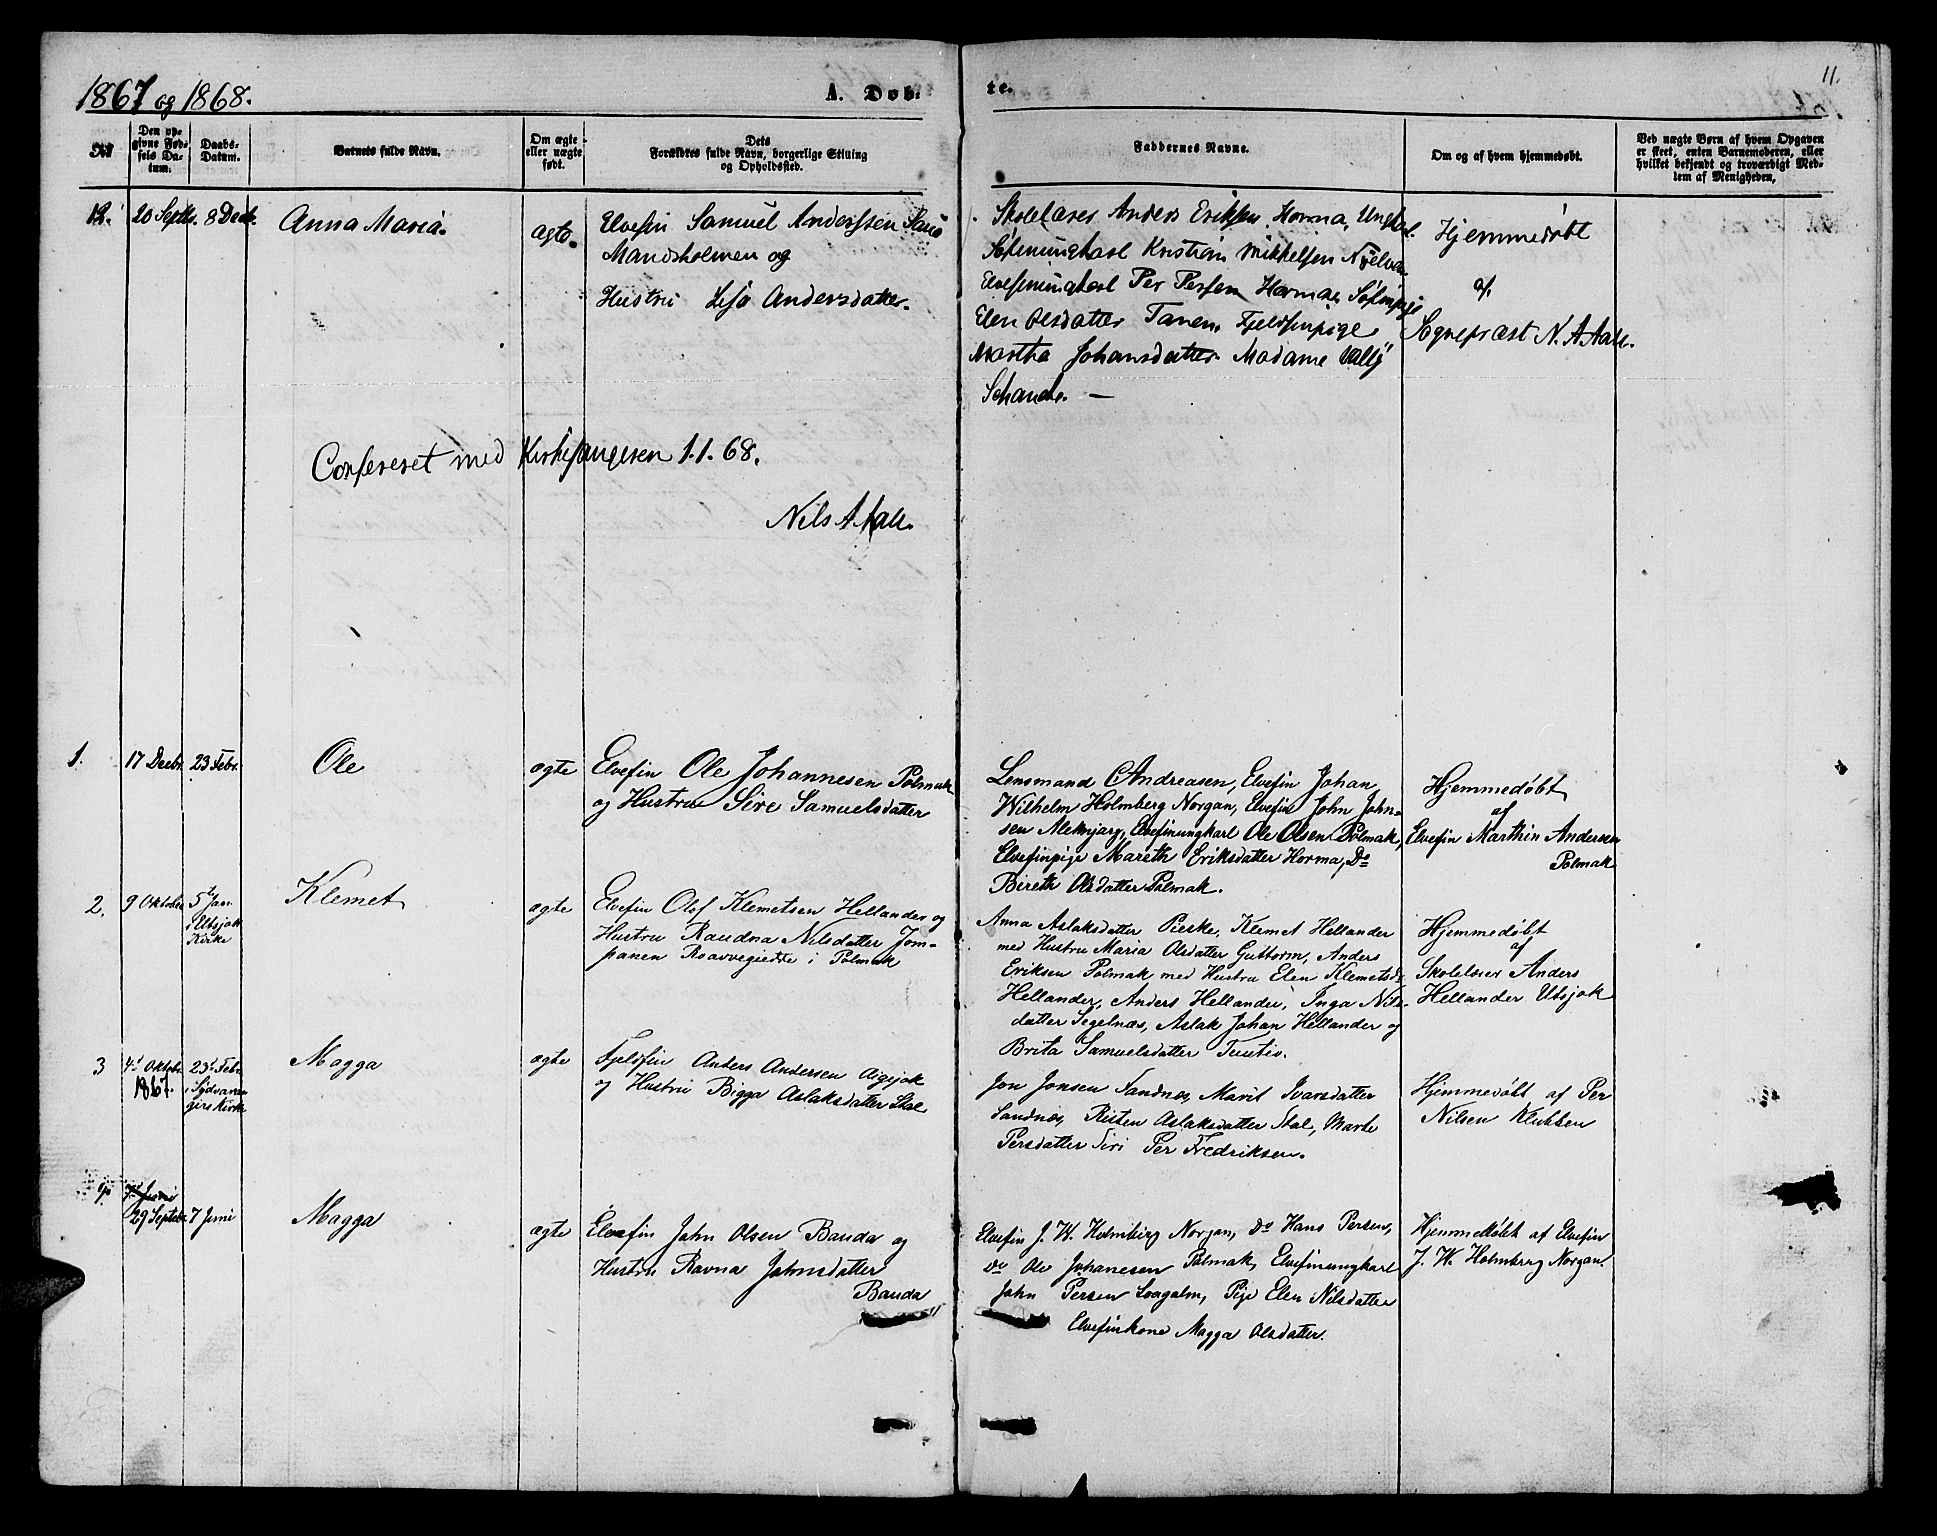 1867 og 1868.
A. Døb-
te.
11.
№
Den op-
givne Fød-
sels Da-
tum.
Daabs-
Datum.
Barnets fulde Navn.
Om ægte
eller uægte
født.
Dets
Forældres fulde Navn, borgerlige Stilling
og Opholdssted.
Faddernes Navne.
Om og af hvem hjemmedøbt.
Ved uægte Børn af hvem Opgaven
er skeet, enten Barnemoderen, eller
hvilket bekjendt og troværdigt Med-
lem af Menigheden.
12.
20 Septbr.
8 Decbr.
Anna Maria.
ægte.
Elvefin Samuel Anderssen
Mandsholmen og
Hustru Lisa Andersdatter.
Skolelærer Anders Eriksen Horma, Ungkarl
Kristian Mikkelsen
Elvefinungkarl Per Persen Horma,
Elen Olsdatter Tanen, Fjeldfinpige
Martha Johansdatter Madame Vally
Schanche. —
Hjemmedøbt
af
Sognepræst N. A. Aall.
Confereret med Kirkesangeren 1.1.68.
Nils A Aall.
1.
17 Decbr.
23 Febr.
Ole
ægte
Elvefin Ole Johannesen Polmak
og Hustru Sire Samuelsdatter
Lensmand Andreasen, Elvefin Johan
Wilhelm Holmberg Norgan, Elvefin John John-
sen Aleknjarg, Elvefinungkarl Ole Olsen Polmak,
Elvefinpige Mareth Eriksdatter Horma, Do
Bireth Olsdatter Polmak.
Hjemmedøbt
af
Elvefin Marthin Andersen
Polmak
2.
9 Oktober
5te Jan.
i Utsjok
Kirke
Klemet
ægte
Elvefin Olof Klemetsen Hellander og
Hustru Raudna Nilsdatter Jom-
panen Roavvegiedde i Polmak
Anna Aslaksdatter Pieske, Klemet Hellander
med Hustru Maria Olsdatter Guttorm, Anders
Eriksen Polmak med Hustru Elen Klemetsdr
Hellander, Anders Hellander, Inga Nils-
datter Segelnæs, Aslak Johan Hellander og
Brita Samuelsdatter Tuutio.
Hjemmedøbt
af
Skolelærer Anders
Hellander Utsjok
3
4de Oktbr.
1867.
23de Febr.
i Sydvaran-
gers Kirke
Magga
ægte
Fjeldfin Anders Andersen Aigijok
og Hustru Bigga Aslaksdatter Stal
Jon Jonsen Sandnæs, Marit Ivarsdatter
Sandnæs, Risten Aslaksdatter Stal, Marte
Persdatter Siri Per Fredriksen.
Hjemmedøbt af Per
Nilsen Klubben
4.
7de Juni
29 Septbr.
7 Juni
Magga
ægte
Elvefin John Olsen Banda og
Hustru Ravna Johnsdatter
Banda
Elvefin J. W. Holmberg Norgan, Do Hans Persen,
Do Ole Johanesen Polmak, Elvefinungkarl
John Persen Loagalm, Pige Elen Nilsdatter
Elvefinkone Magga Olsdatter.
Hjemmedøbt af Elvefin
J. W. Holmberg Norgan.